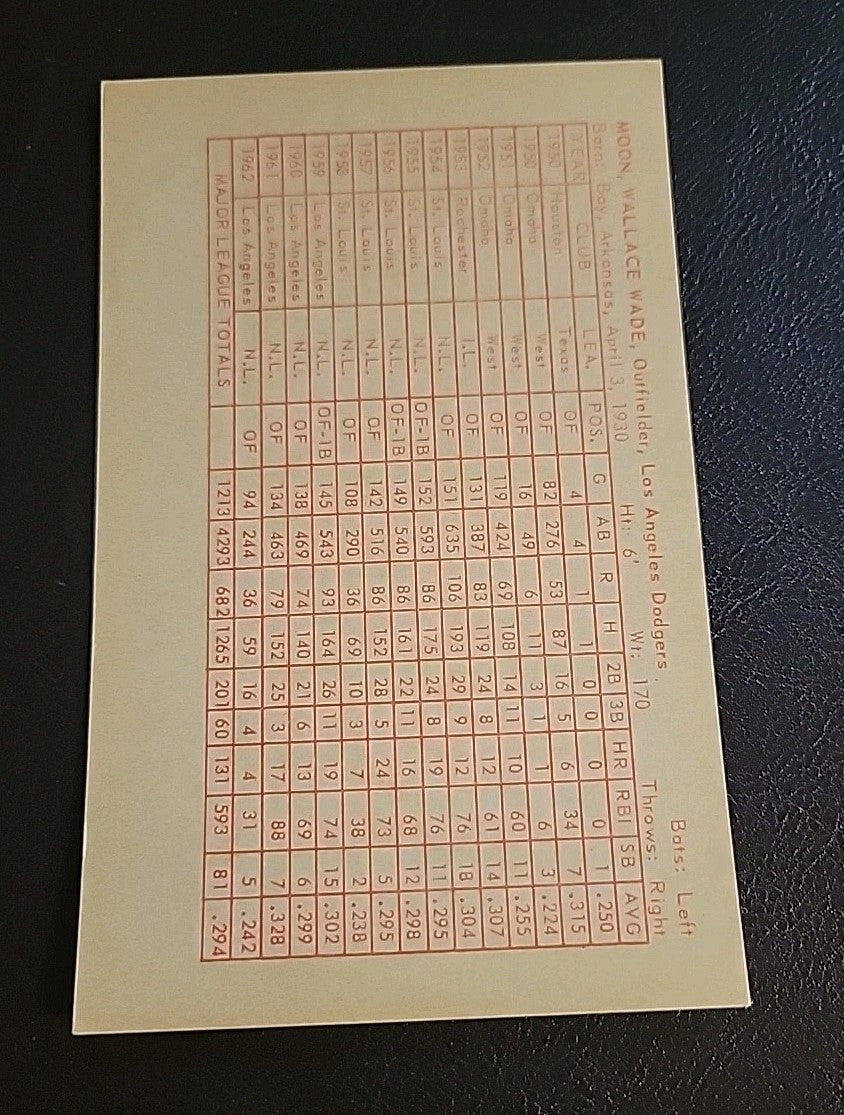 MOON, WALLACE WADE, Outfielder, Los Angeles Dodgers. Bats: Left
Born: Bay, Arkansas, April 3, 1930 Ht: 6' Wt: 170 Throws: Right
YEAR CLUB LEA. POS. G AB R H 2B 3B HR RBI SB AVG
1950 Houston Texas OF 4 4 1 1 0 0 0 0 1 .250
1950 Omaha West OF 82 276 53 87 16 5 6 34 7 .315
1951 Omaha West OF 16 49 6 11 3 1 1 6 3 .224
1952 Omaha West OF 119 424 69 108 14 11 10 60 11 .255
1953 Rochester I.L. OF 131 387 83 119 24 8 12 61 14 .307
1954 St. Louis N.L. OF 151 635 106 193 29 9 12 76 18 .304
1955 St. Louis N.L. OF-1B 152 593 86 175 24 8 19 76 11 .295
1956 St. Louis N.L. OF-1B 149 540 86 161 22 11 16 68 12 .298
1957 St. Louis N.L. OF 142 516 86 152 28 5 24 73 5 .295
1958 St. Louis N.L. OF 108 290 36 69 10 3 7 38 2 .238
1959 Los Angeles N.L. OF-1B 145 543 93 164 26 11 19 74 15 .302
1960 Los Angeles N.L. OF 138 469 74 140 21 6 13 69 6 .299
1961 Los Angeles N.L. OF 134 463 79 152 25 3 17 88 7 .328
1962 Los Angeles N.L. OF 94 244 36 59 16 4 4 31 5 .242
MAJOR LEAGUE TOTALS 1213 4293 682 1265 201 60 131 593 81 .294